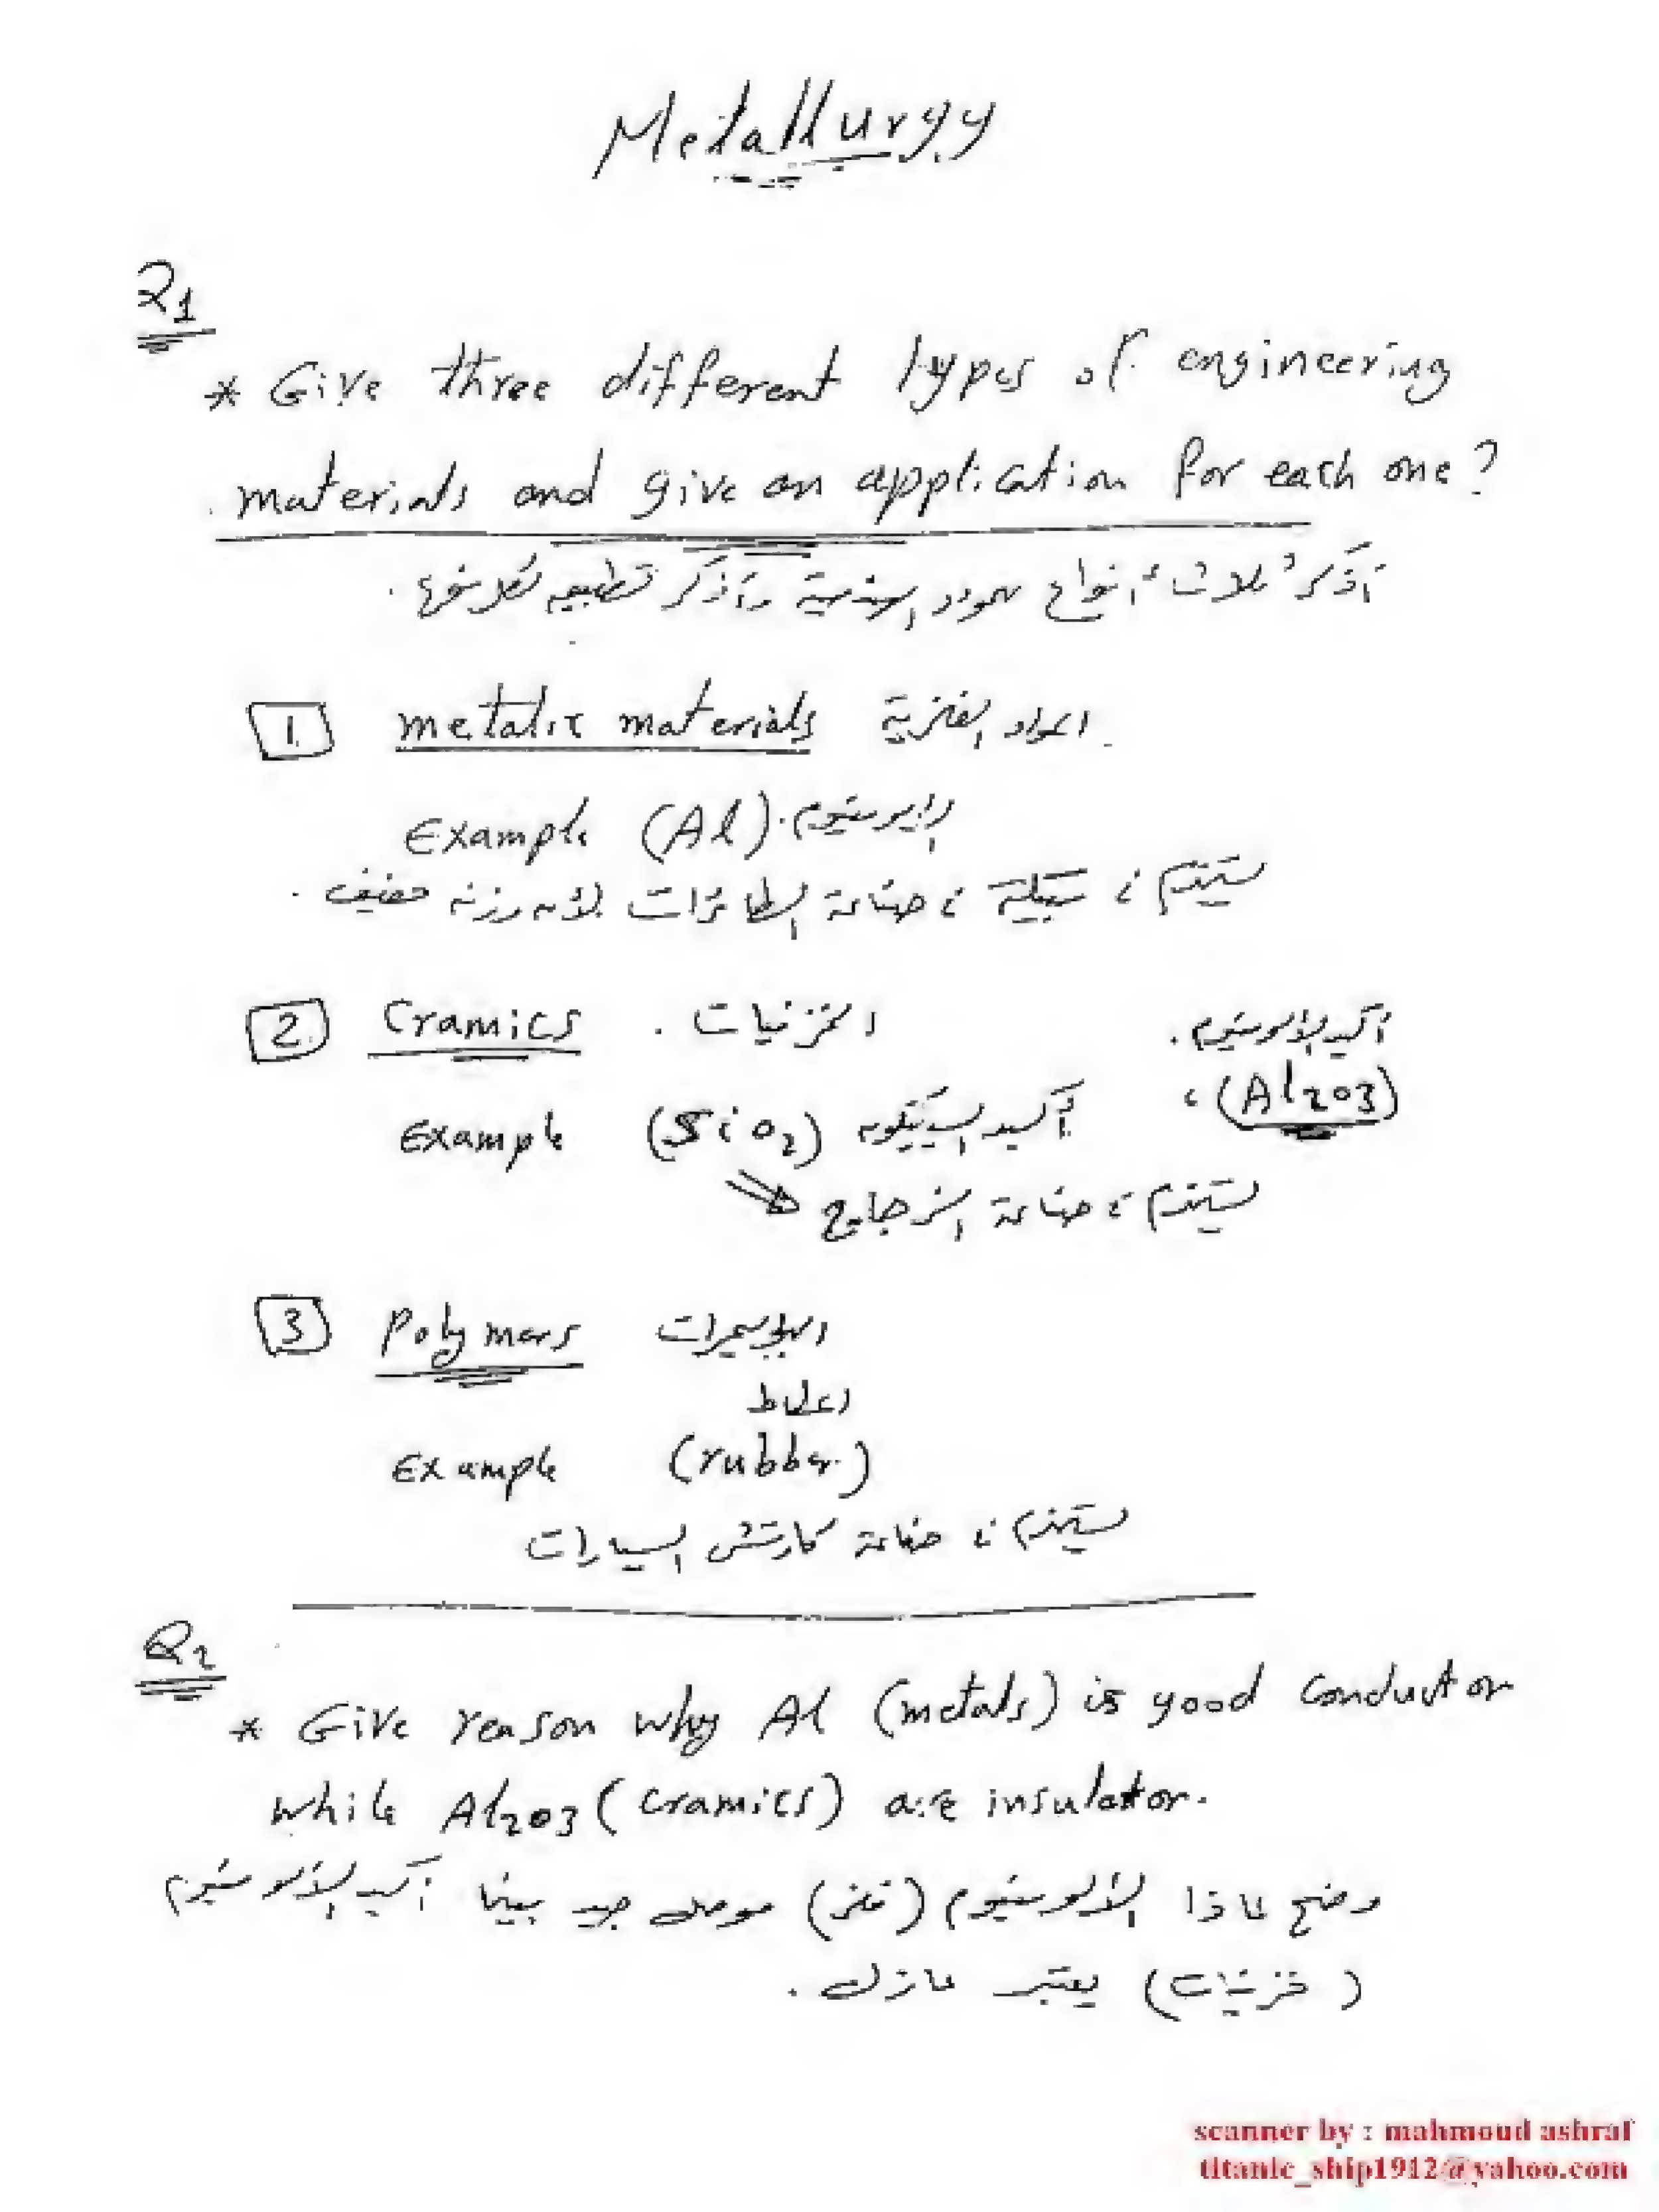 Metallurgy
Q1
* Give three different types of engineering
materials and give an application for each one?
أذكر ثلاث أنواع للمواد الهندسية وأذكر تطبيق لكل نوع.
1 metalic materials المواد الفلزية.
Example (Al). الألومنيوم
يستخدم في سبيكة في صناعة الطائرات لأنه وزنه خفيف.
2 Cramics. الخزفيات
أكسيد الألومنيوم.
Example (SiO2) أكسيد السيليكون، (Al2O3)
يستخدم في صناعة الزجاج
3 Polymers البوليمرات
المطاط
Example (rubber.)
يستخدم في صناعة كاوتش السيارات
Q2
* Give reason why Al (metals) is good conductor
while Al2O3 (cramics) are insulator.
وضح لماذا الألومنيوم (فلز) موصل جيد بينما أكسيد الألومنيوم
(خزفيات) يعتبر عازل.
scanner by : mahmoud ashraf
titanic_ship1912@yahoo.com